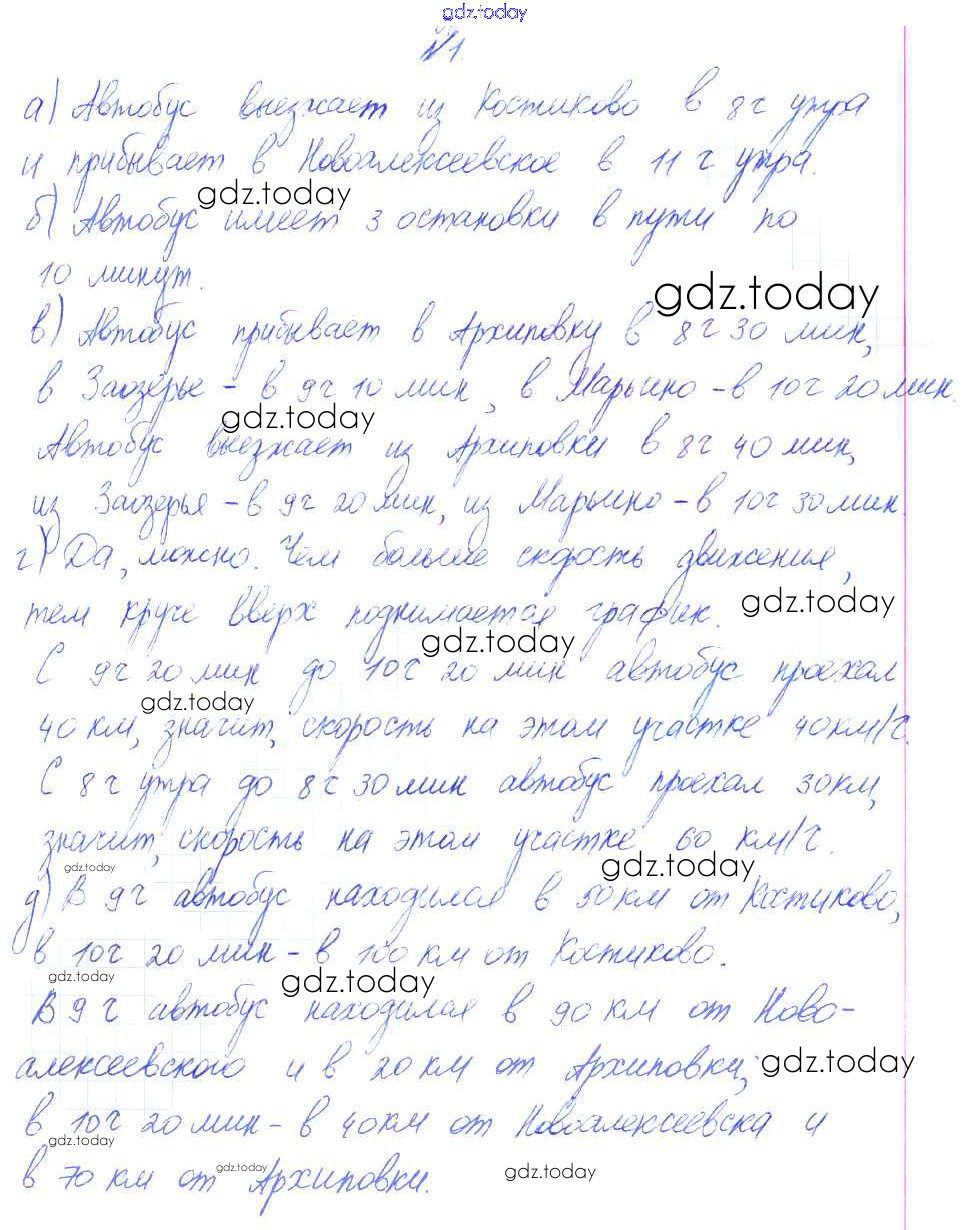 gdz.today
№1.
а) Автобус выезжает из Костиково в 8 ч утра
и прибывает в Новоалексеевское в 11 ч утра.
gdz.today
б) Автобус имеет 3 остановки в пути по
10 минут.
gdz.today
в) Автобус прибывает в Архиповку в 8 ч 30 мин,
в Заозерье - в 9 ч 10 мин, в Марьино - в 10 ч 20 мин.
gdz.today
Автобус выезжает из Архиповки в 8 ч 40 мин,
из Заозерья - в 9 ч 20 мин, из Марьино - в 10 ч 30 мин.
г) Да, можно. Чем больше скорость движения,
тем круче вверх поднимается график.
gdz.today
gdz.today
С 9 ч 20 мин до 10 ч 20 мин автобус проехал
gdz.today
40 км, значит, скорость на этом участке 40 км/ч.
С 8 ч утра до 8 ч 30 мин автобус проехал 30 км,
значит, скорость на этом участке 60 км/ч.
gdz.today
gdz.today
д) В 9 ч автобус находился в 50 км от Костиково,
в 10 ч 20 мин - в 100 км от Костиково.
gdz.today
gdz.today
В 9 ч автобус находился в 90 км от Ново-
алексеевского и в 20 км от Архиповки,
gdz.today
в 10 ч 20 мин - в 40 км от Новоалексеевска и
gdz.today
в 70 км от Архиповки.
gdz.today
gdz.today